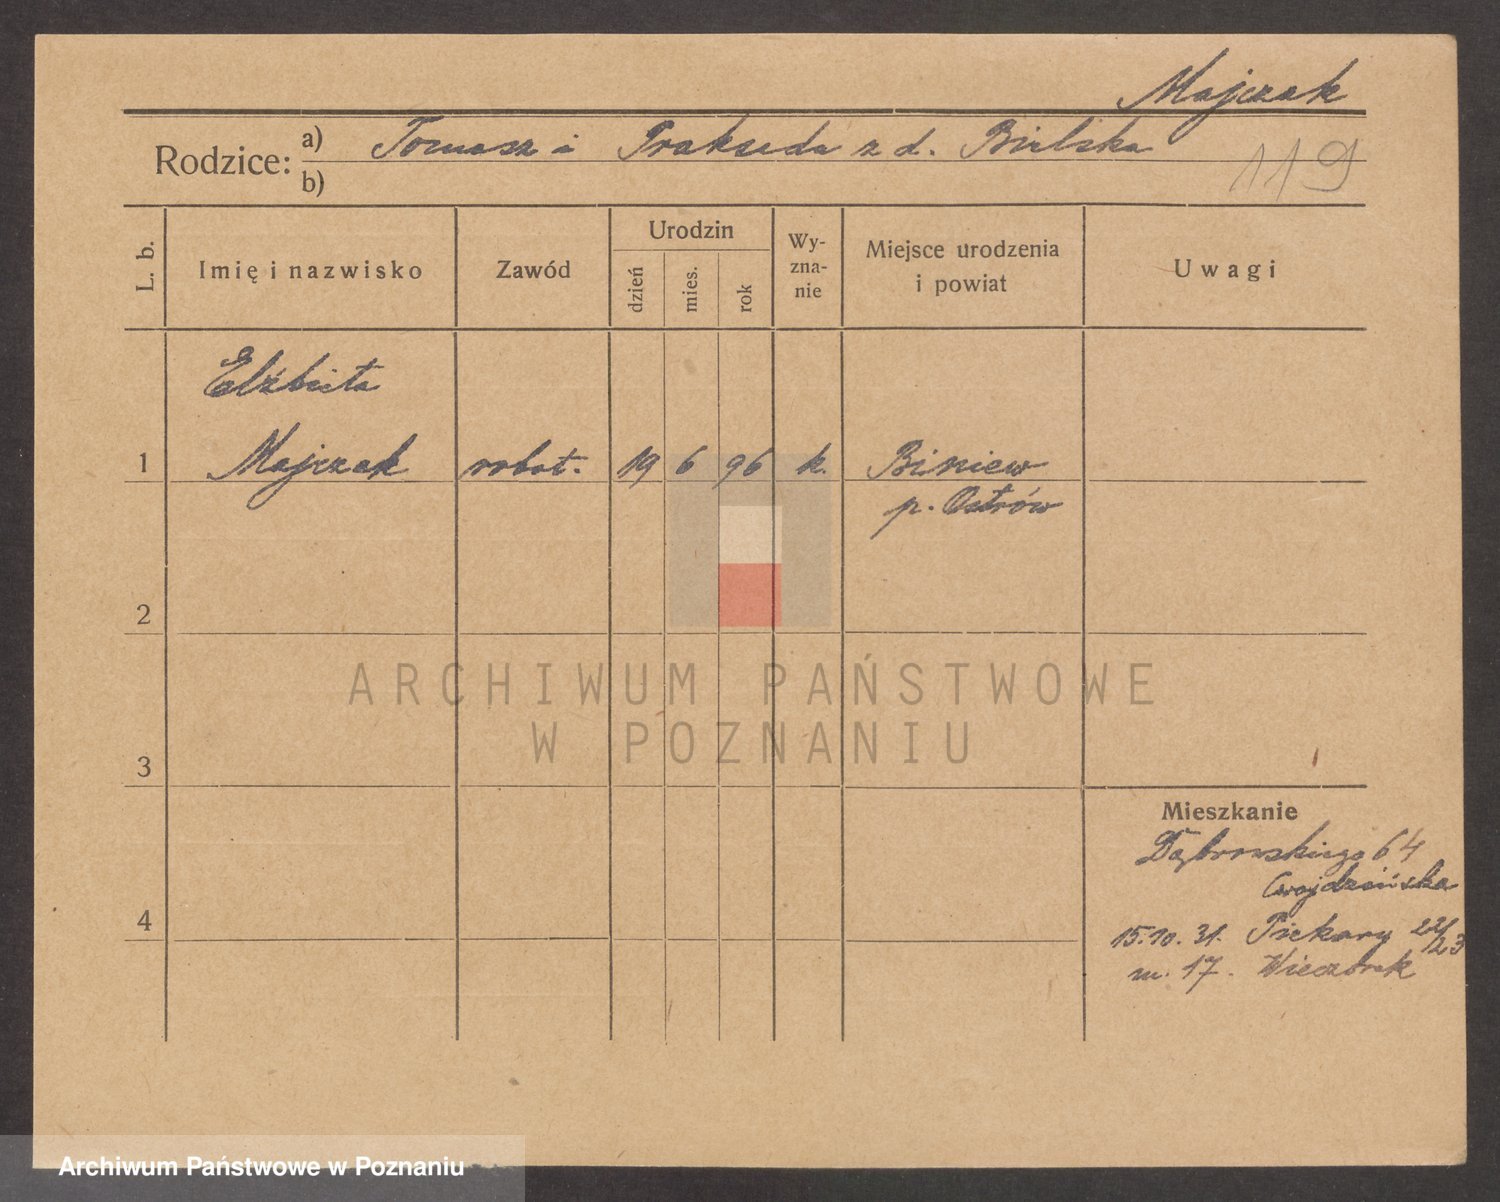 Majczak
Rodzice: a) Tomasz i Prakseda z d. Bielska
b)
119
L. b.
Imię i nazwisko
Zawód
Urodzin
dzień
mies.
rok
Wy-
zna-
nie
Miejsce urodzenia
i powiat
Uwagi
Elżbieta
1 Majczak robot. 19 6 96 k. Biniew
p. Ostrów
2
ARCHIWUM PAŃSTWOWE
W POZNANIU
3
Mieszkanie
Dąbrowskiego 64
4
15.10.31. Piekary 22/23
m. 17. Wieczorek
Archiwum Państwowe w Poznaniu